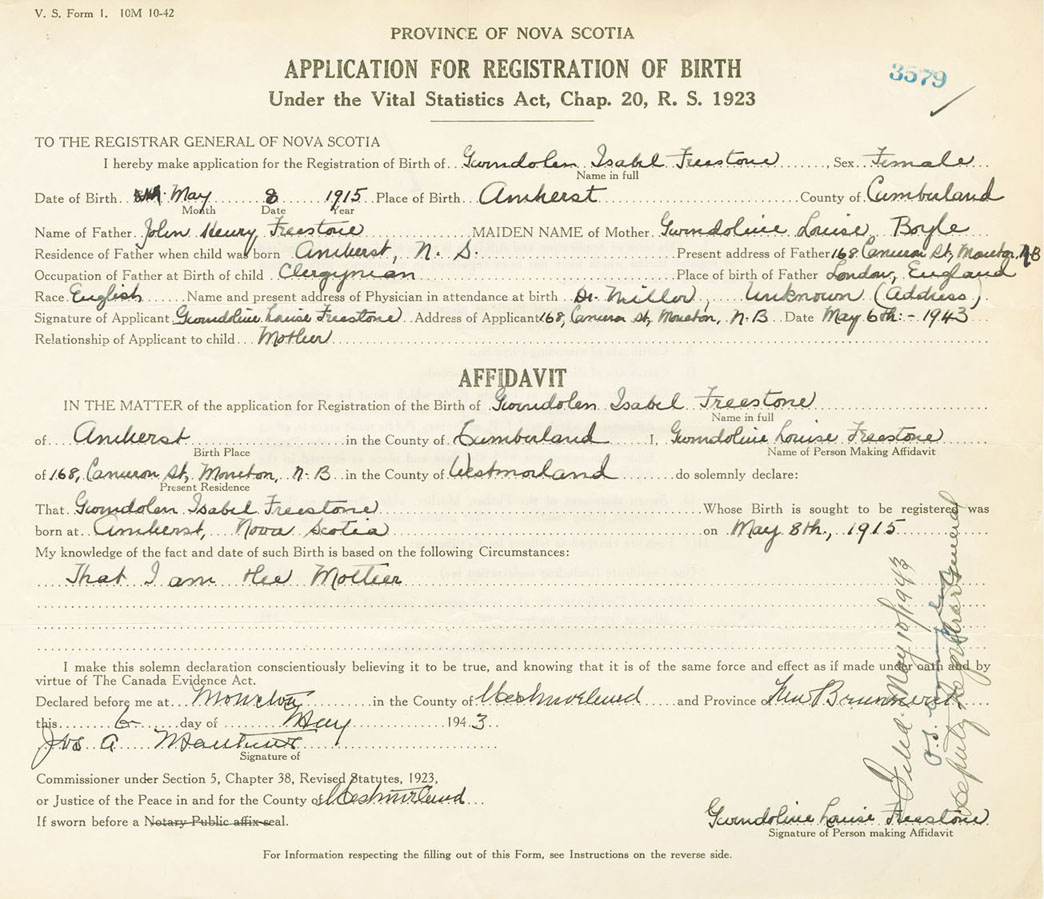 V. S. Form 1. 10M 10-42
PROVINCE OF NOVA SCOTIA
APPLICATION FOR REGISTRATION OF BIRTH
3579
Under the Vital Statistics Act, Chap. 20, R. S. 1923
TO THE REGISTRAR GENERAL OF NOVA SCOTIA
I hereby make application for the Registration of Birth of Gwendolen Isabel Freestone, Sex Female
Name in full
Date of Birth May 8 1915 Place of Birth Amherst County of Cumberland
Month Date Year
Name of Father John Henry Freestone MAIDEN NAME of Mother Gwendoline Louise Boyle
Residence of Father when child was born Amherst, N. S. Present address of Father 168 Cameron St, Moncton, N-B
Occupation of Father at Birth of child Clergyman Place of birth of Father London, England
Race English Name and present address of Physician in attendance at birth Dr. Miller, Unknown (Address)
Signature of Applicant Gwendoline Louise Freestone Address of Applicant 168, Cameron St, Moncton, N-B Date May 6th:- 1943
Relationship of Applicant to child Mother
AFFIDAVIT
IN THE MATTER of the application for Registration of the Birth of Gwendolen Isabel Freestone
Name in full
of Amherst in the County of Cumberland I, Gwendoline Louise Freestone
Birth Place Name of Person Making Affidavit
of 168, Cameron St, Moncton, N-B in the County of Westmorland do solemnly declare:
Present Residence
That Gwendolen Isabel Freestone Whose Birth is sought to be registered was
born at Amherst, Nova Scotia on May 8th., 1915
My knowledge of the fact and date of such Birth is based on the following Circumstances:
That I am the Mother
I make this solemn declaration conscientiously believing it to be true, and knowing that it is of the same force and effect as if made under oath and by
virtue of The Canada Evidence Act.
Declared before me at Moncton in the County of Westmorland and Province of New Brunswick
this 6 day of May 1943
Jos A
Signature of
Commissioner under Section 5, Chapter 38, Revised Statutes, 1923,
or Justice of the Peace in and for the County of Westmorland
If sworn before a Notary Public affix seal.
Gwendoline Louise Freestone
Signature of Person making Affidavit
For Information respecting the filling out of this Form, see Instructions on the reverse side.
Filed. May 10/1943
Deputy Registrar General